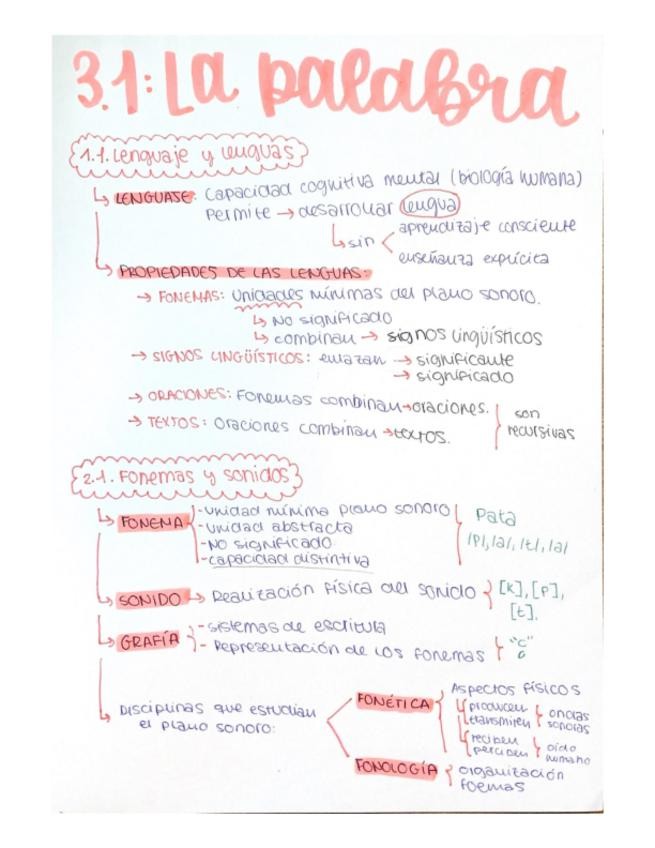 3.1: La palabra
1.1. Lenguaje y lenguas
LENGUAJE: Capacidad cognitiva mental (biología humana)
Permite → desarrollar lengua
sin
aprendizaje consciente
enseñanza explícita
PROPIEDADES DE LAS LENGUAS:
→ FONEMAS: Unidades mínimas del plano sonoro.
NO significado
combinan → signos lingüísticos
→ SIGNOS LINGÜÍSTICOS: enlazan → significante
→ significado
→ ORACIONES: Fonemas combinan → oraciones.
→ TEXTOS: Oraciones combinan → textos.
son
recursivas
2.1. Fonemas y sonidos
FONEMA
-unidad mínima plano sonoro
-unidad abstracta
-NO significado
-capacidad distintiva
Pata
/p/, /a/, /t/, /a/
SONIDO → Realización física del sonido
[k], [p],
[t].
GRAFÍA
-sistemas de escritura
- Representación de los fonemas
"c"
Disciplinas que estudian
el plano sonoro:
FONÉTICA
Aspectos físicos
producen
transmiten
ondas
sonoras
reciben
perciben
oído
humano
FONOLOGÍA
organización
foemas